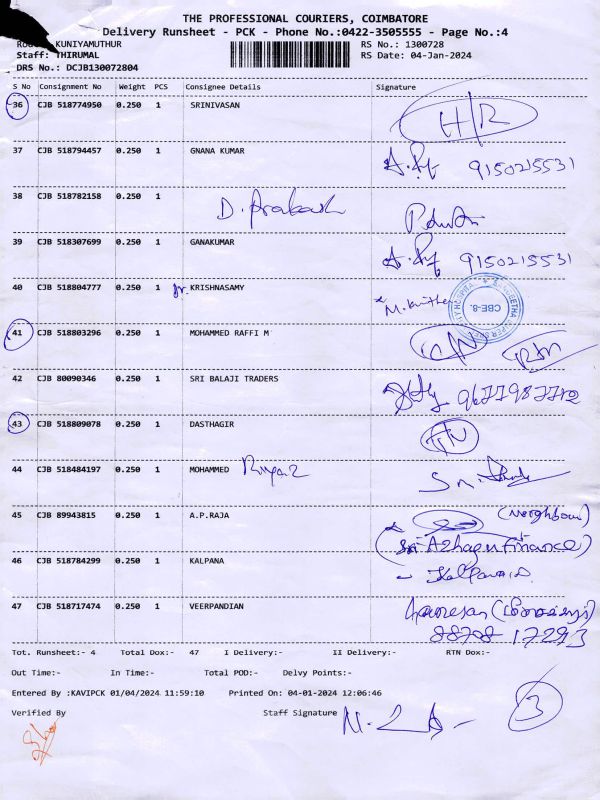 THE PROFESSIONAL COURIERS, COIMBATORE
Delivery Runsheet - PCK - Phone No.:0422-3505555 - Page No.:4
KUNIYAMUTHUR RS No.: 1300728
Staff: THIRUMAL RS Date: 04-Jan-2024
DRS No.: DCJB130072804
S No Consignment No Weight PCS Consignee Details Signature
36 CJB 518774950 0.250 1 SRINIVASAN
37 CJB 518794457 0.250 1 GNANA KUMAR 9150215531
38 CJB 518782158 0.250 1 D. Prakash
39 CJB 518307699 0.250 1 GANAKUMAR 9150215531
40 CJB 518804777 0.250 1 Dr. KRISHNASAMY CBE-8.
41 CJB 518803296 0.250 1 MOHAMMED RAFFI M
42 CJB 80090346 0.250 1 SRI BALAJI TRADERS 9677987772
43 CJB 518809078 0.250 1 DASTHAGIR
44 CJB 518484197 0.250 1 MOHAMMED Riyaz
45 CJB 89943815 0.250 1 A.P.RAJA (Neighbour)
(Sri Azhagu finance)
46 CJB 518784299 0.250 1 KALPANA - Kalpana
47 CJB 518717474 0.250 1 VEERPANDIAN
88708 17293
Tot. Runsheet:- 4 Total Dox:- 47 I Delivery:- II Delivery:- RTN Dox:-
Out Time:- In Time:- Total POD:- Delvy Points:-
Entered By :KAVIPCK 01/04/2024 11:59:10 Printed On: 04-01-2024 12:06:46
Verified By Staff Signature 3